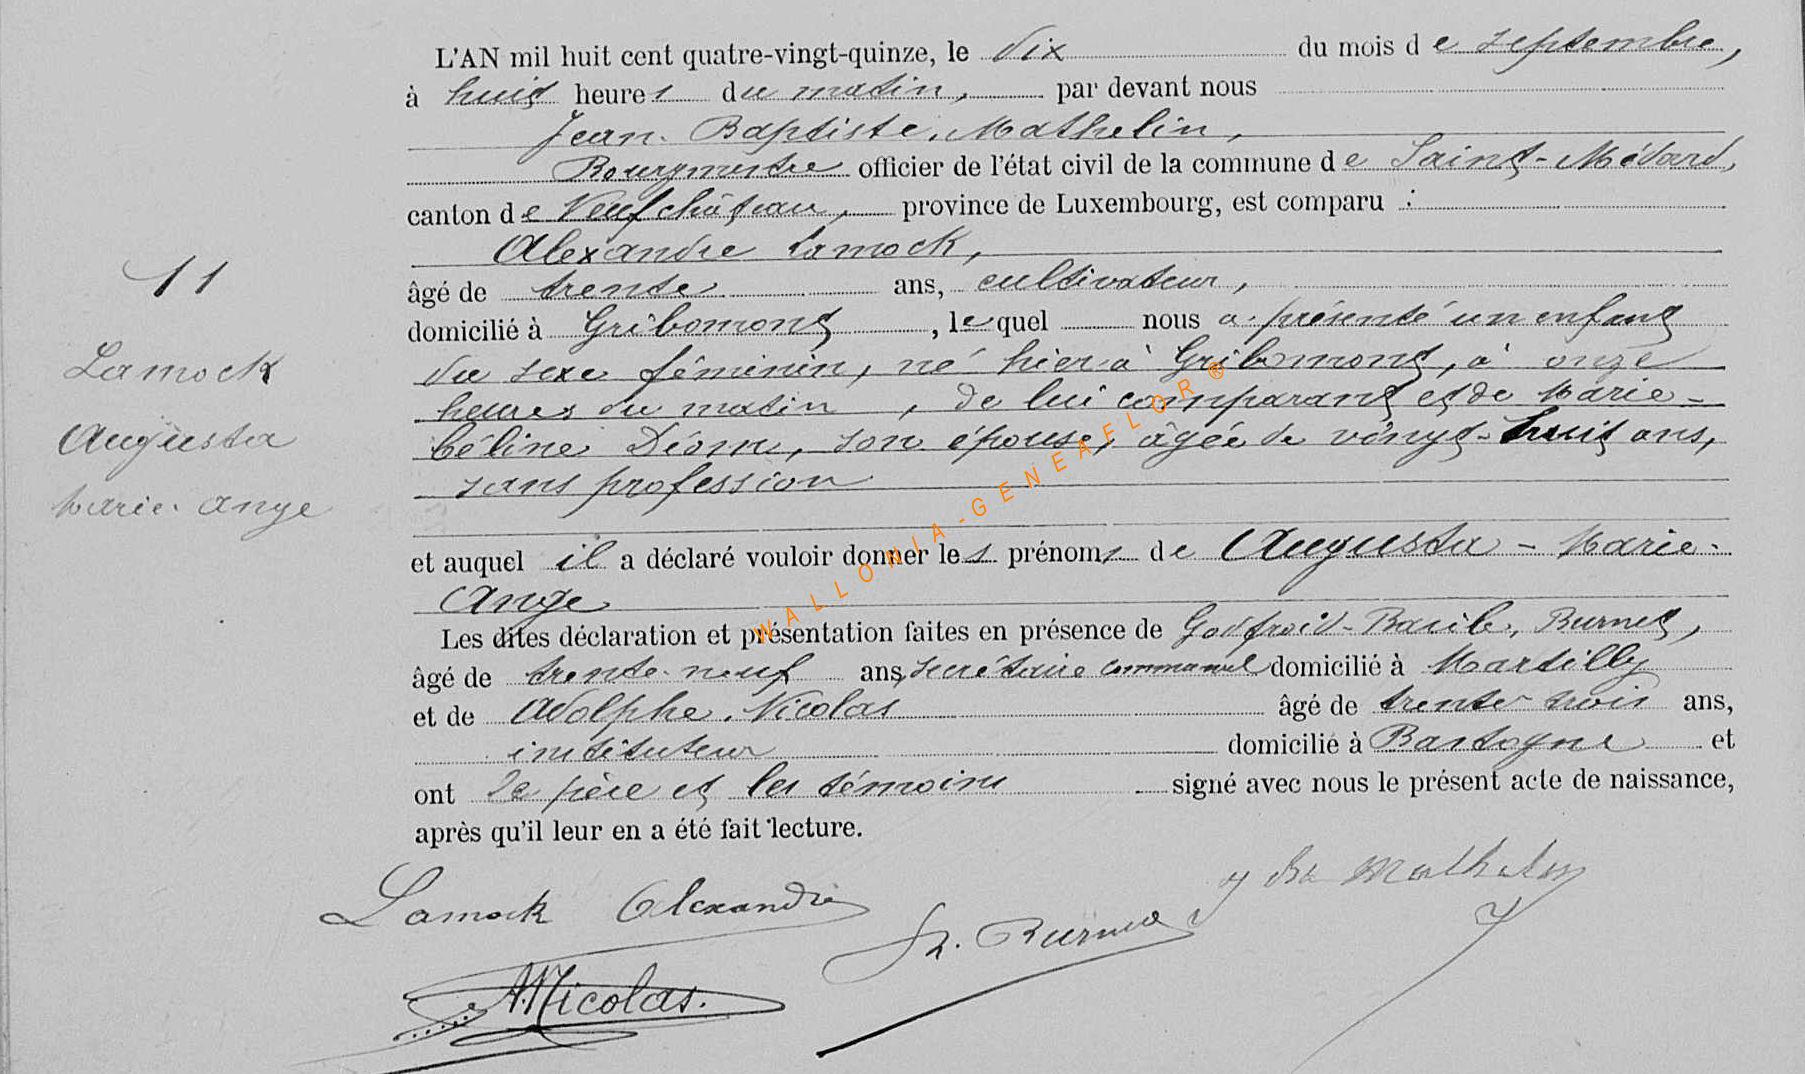 L'AN mil huit cent quatre-vingt-quinze, le dix du mois de septembre,
à huit heures du matin, par devant nous
Jean-Baptiste Mathelin,
Bourgmestre officier de l'état civil de la commune de Saint-Médard,
canton de Neufchâteau, province de Luxembourg, est comparu :
Alexandre Lamock,
âgé de trente ans, cultivateur,
domicilié à Gribomont, lequel nous a présenté un enfant
du sexe féminin, né hier à Gribomont, à onze
heures du matin, de lui comparant et de Marie-
Céline Déom, son épouse, âgée de vingt-huit ans,
sans profession
et auquel il a déclaré vouloir donner les prénoms de Augusta-Marie-
Ange
Les dites déclaration et présentation faites en présence de Godfroid- Burnet,
âgé de trente-neuf ans, secrétaire communal domicilié à Martilly
et de Adolphe Nicolas âgé de trente-trois ans,
instituteur domicilié à Bastogne et
ont le père et les témoins signé avec nous le présent acte de naissance,
après qu'il leur en a été fait lecture.
11
Lamock
Augusta
Marie-Ange
WALLONIA-GENEAFLOR®
Lamock Alexandre
Mathelin
Burnet
A. Nicolas.